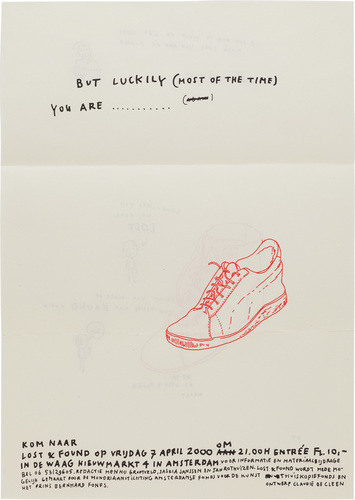 BUT LUCKILY (MOST OF THE TIME)
YOU ARE ...........
KOM NAAR
LOST & FOUND OP VRIJDAG 7 APRIL 2000 OM 21.00H ENTRÉE FL.10,-
IN DE WAAG NIEUWMARKT 4 IN AMSTERDAM VOOR INFORMATIE EN MATERIAALBIJDRAGE
BEL 06 53123605. REDACTIE MENNO GROOTVELD, SASKIA JANSSEN EN JAN ROTHUIZEN. LOST & FOUND WORDT MEDE MO-
GELIJK GEMAAKT DOOR DE MONDRIAANSTICHTING AMSTERDAMS FONDS VOOR DE KUNST THUISKOPIEFONDS EN
HET PRINS BERNHARD FONDS. ONTWERP CLAUDIE DE CLEEN